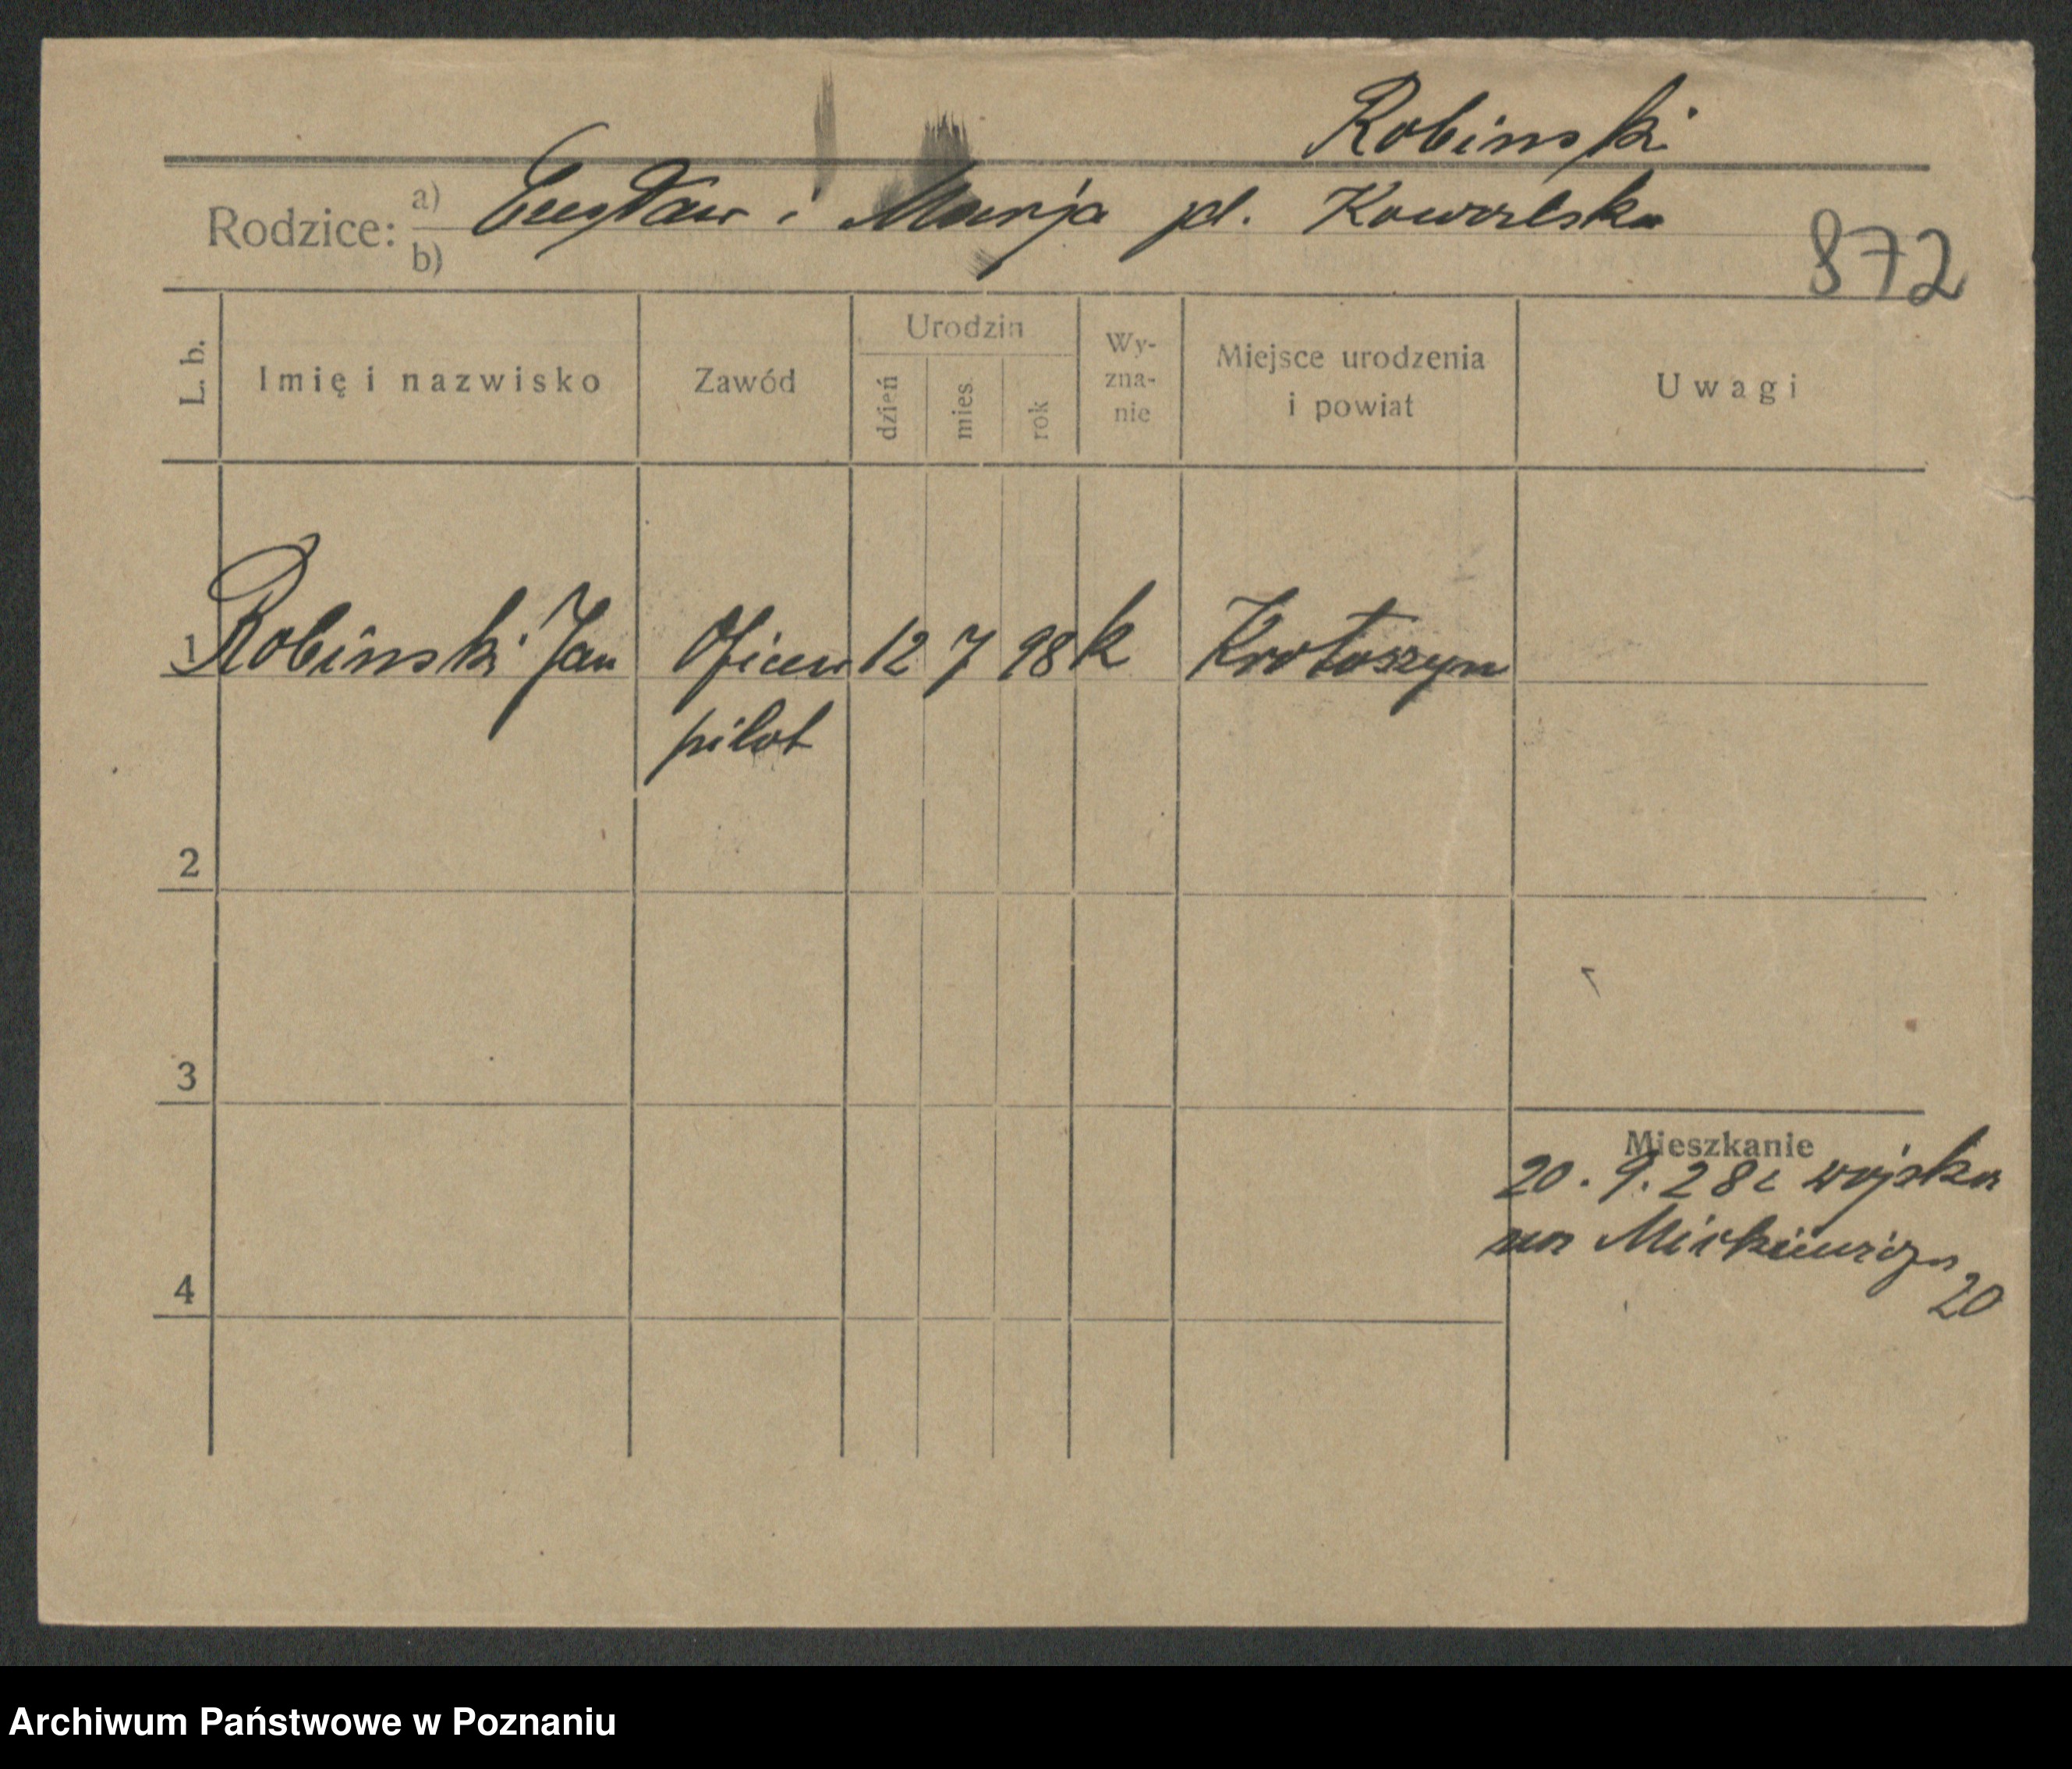 Robinski
Rodzice: a) Gustaw i Marja pd. Kowalska
b)
872
L. b.
Imię i nazwisko
Zawód
Urodzin
dzień
mies.
rok
Wy-
zna-
nie
Miejsce urodzenia
i powiat
Uwagi
1 Robinski Jan Oficer 12 7 98 k Krotoszyn
pilot
2
3
Mieszkanie
20. 9. 28 z wojska
na Mickiewicza
20
4
Archiwum Państwowe w Poznaniu